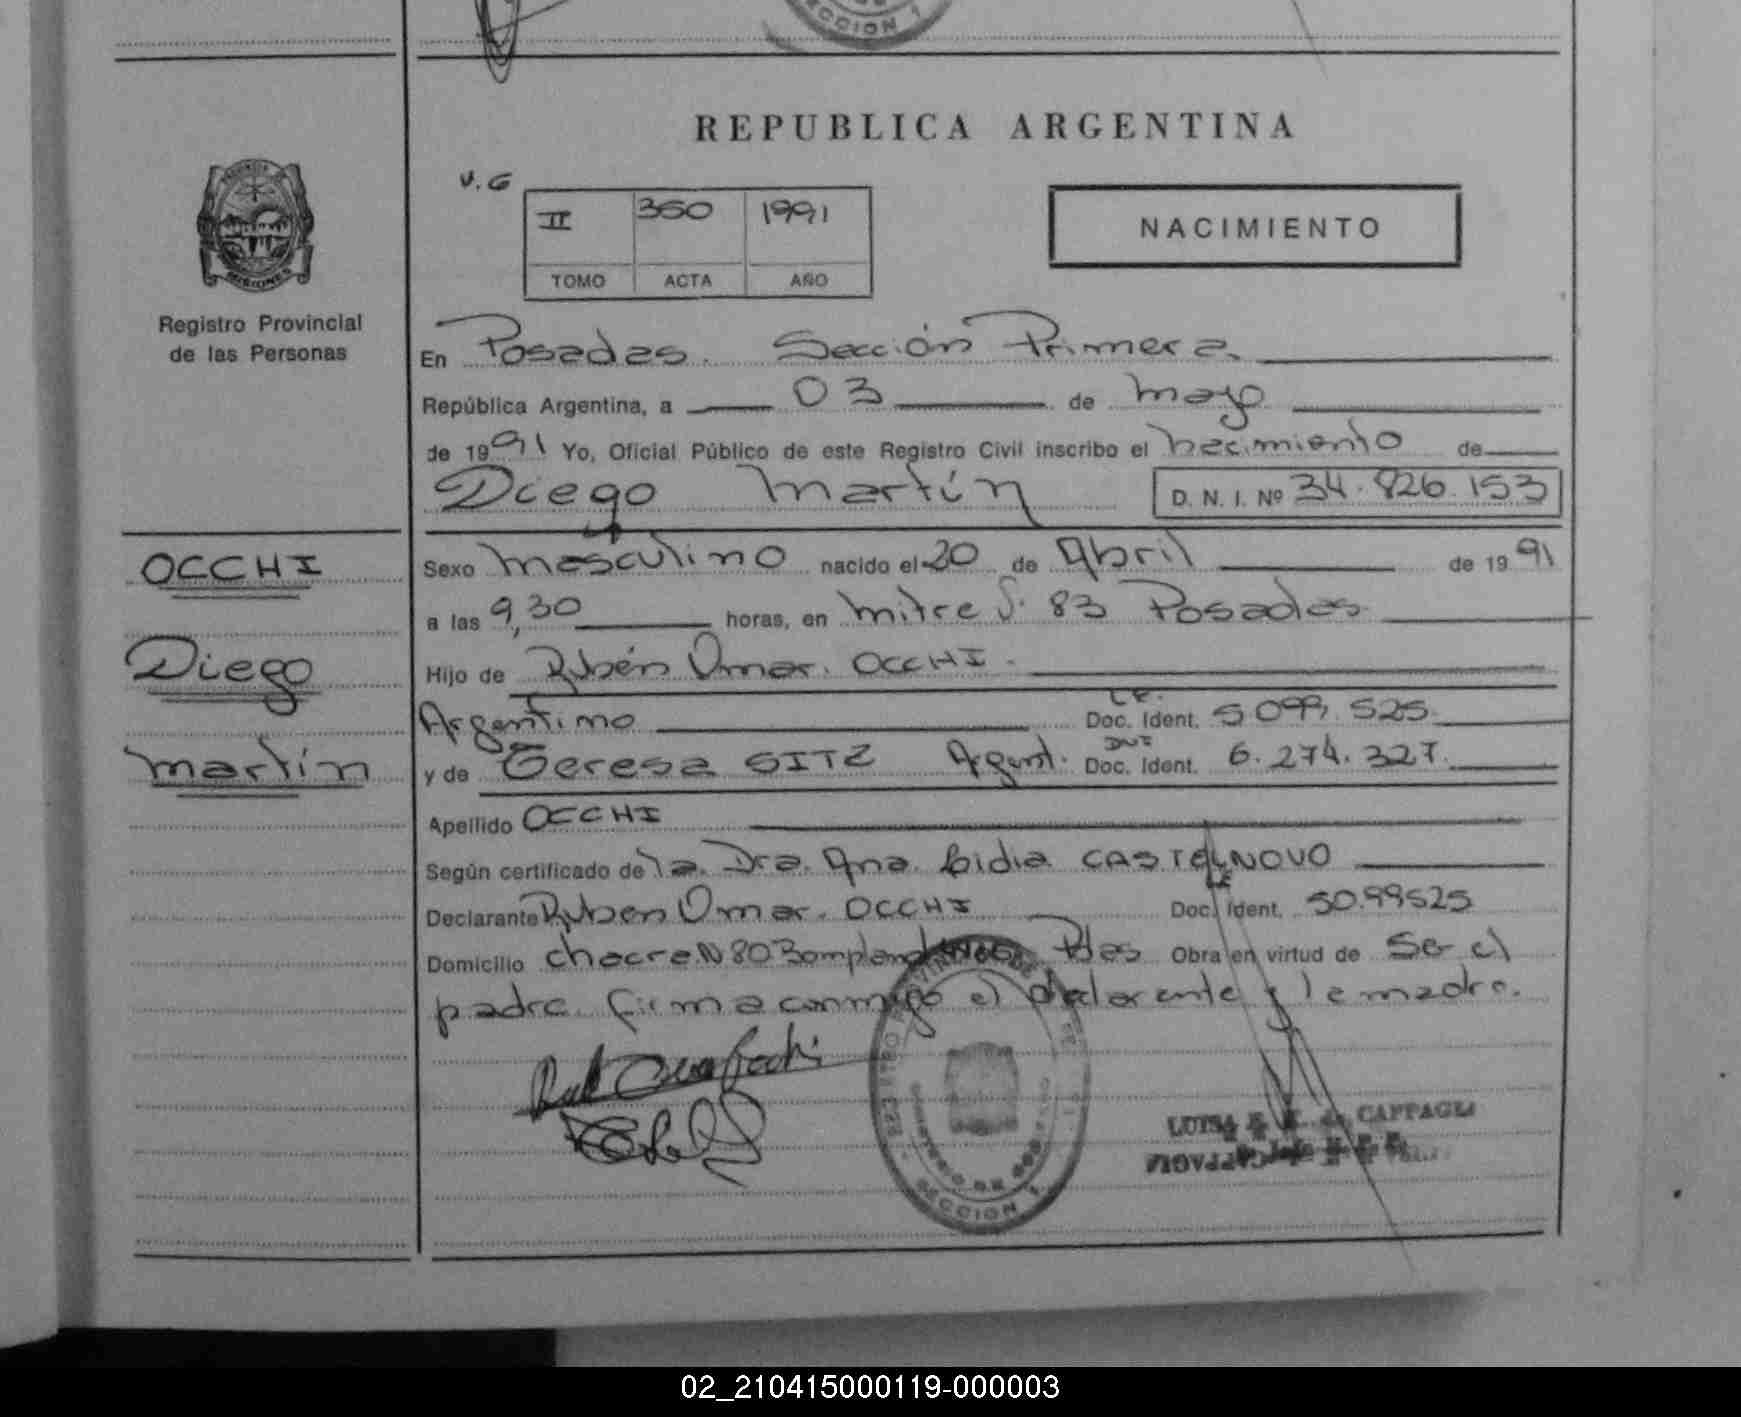 SECCION 1
REPUBLICA ARGENTINA
V.G
II 350 1991
TOMO ACTA AÑO
NACIMIENTO
MISIONES
Registro Provincial
de las Personas
En Posadas. Sección Primera.
República Argentina, a 03 de mayo
de 1991 Yo, Oficial Público de este Registro Civil inscribo el nacimiento de
Diego Martín D. N. I. Nº 34.826.153
OCCHI
Diego
Martín
Sexo masculino nacido el 20 de Abril de 1991
a las 9,30 horas, en Mitre S. 83 Posadas
Hijo de Rubén Omar. OCCHI.
L.E.
Argentino Doc. Ident. 5.099.525
DNI
y de Teresa SITZ Argent. Doc. Ident. 6.274.327.
Apellido OCCHI
Según certificado de la. Dra. Ana. Lidia CASTELNOVO
LE
Declarante Ruben Omar. OCCHI Doc. Ident. 50.99525
Domicilio chacra N 80 Pdas Obra en virtud de Ser el
padre. firma conmigo el declarante y la madre.
SECCION 1
LUISA CAFFAGLI
02_210415000119-000003